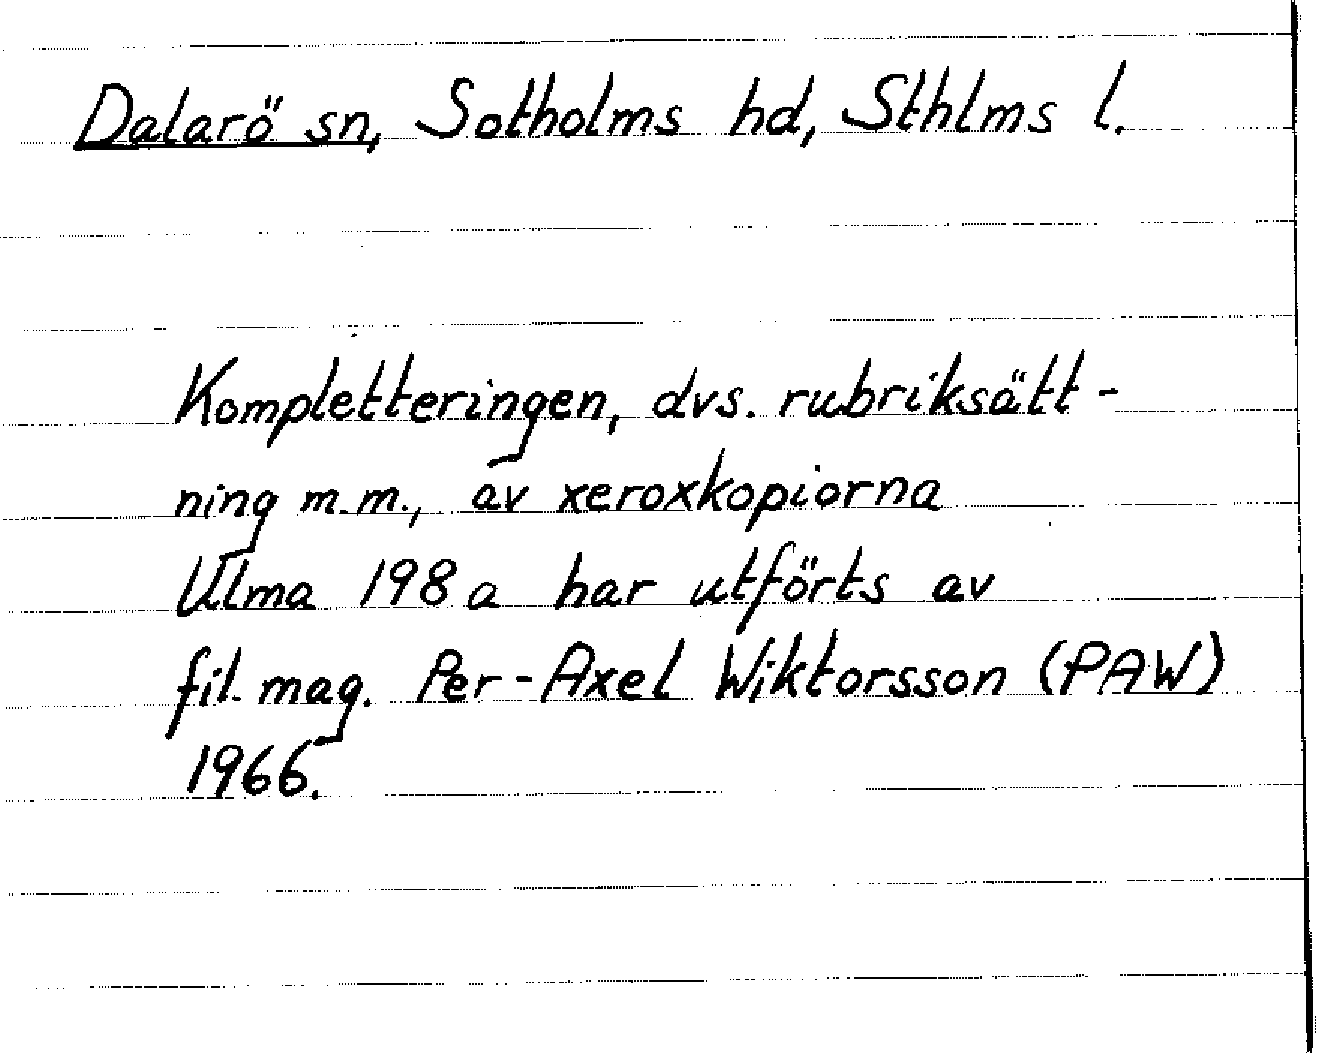 Dalarö sn, Sotholms hd, Sthlms l.
Kompletteringen, dvs. rubriksätt-
ning m.m., av xeroxkopiorna
Ulma 198 a har utförts av
fil. mag. Per-Axel Wiktorsson (PAW)
1966.